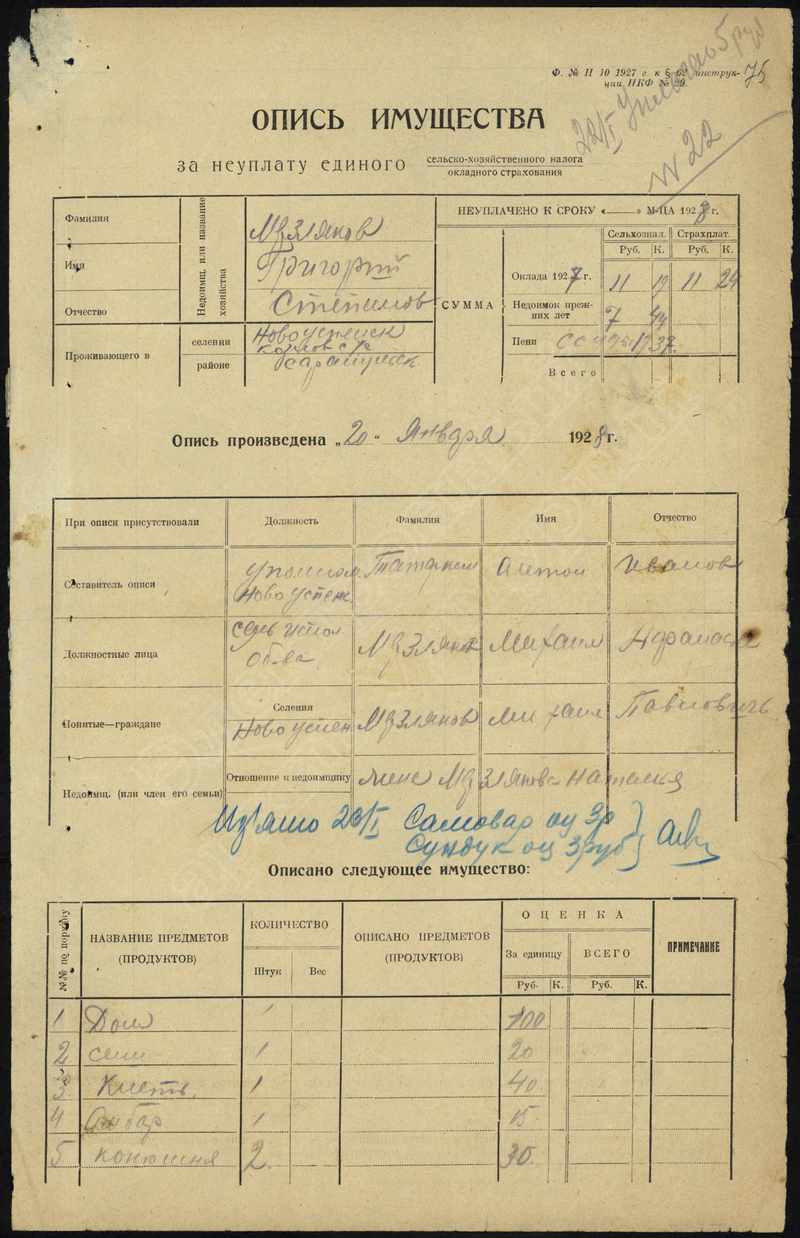 Ф. № II 10 1927 г. к § 62 инструк-
ции НКФ № 20.
75
22/I
№ 22
ОПИСЬ ИМУЩЕСТВА
за неуплату единого сельско-хозяйственного налога
окладного страхования
Фамилия
Имя
Отчество
Недоимщ. или название хозяйства
Мзляков
Григорий
Степанов
Проживающего в
селении
районе
Сарапульск
НЕУПЛАЧЕНО К СРОКУ «——» М-ЦА 1928 г.
СУММА
Сельхознал. Страхплат.
Руб. К. Руб. К.
Оклада 1927 г. 11 19 11 24
Недоимок преж-
них лет 7
Пени
Всего
Опись произведена „20“ Января 1928 г.
При описи присутствовали Должность Фамилия Имя Отчество
Составитель описи
Ново Успен Антон Иванов
Должностные лица
Мзляков Михаил
Понятые—граждане
Селения
Ново Успен Мзляков Михаил Павлович
Недоимщ. (или член его семьи)
Отношение к недоимщику
жена Мзлякова Наталья
Изъято 22/I Самовар оц 3р
Сундук оц 3 руб
Описано следующее имущество:
№№ по порядку
НАЗВАНИЕ ПРЕДМЕТОВ
(ПРОДУКТОВ)
КОЛИЧЕСТВО
Штук Вес
ОПИСАНО ПРЕДМЕТОВ
(ПРОДУКТОВ)
ОЦЕНКА
За единицу ВСЕГО
Руб. К. Руб. К.
ПРИМЕЧАНИЕ
1 Дом 1 100
2 сени 1 20
3 Клеть 1 40
4 Анбар 1 15
5 конюшня 2 30